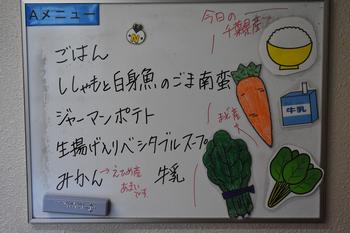 Aメニュー
今日の
千葉県産
ごはん
ししゃもと白身魚のごま南蛮
ジャーマンポテト
生揚げ入りベジタブルスープ
みかん→えひめ産 牛乳
あまい
です
牛乳